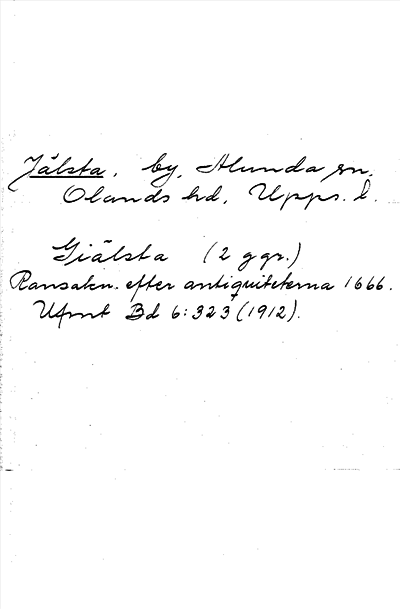 Jälsta, by, Alunda sn,
Olands hd, Upps. l.
Giälsta (2 ggr.)
Ransakn. efter antiquiteterna 1666.
Ufmt Bd 6:323 (1912).